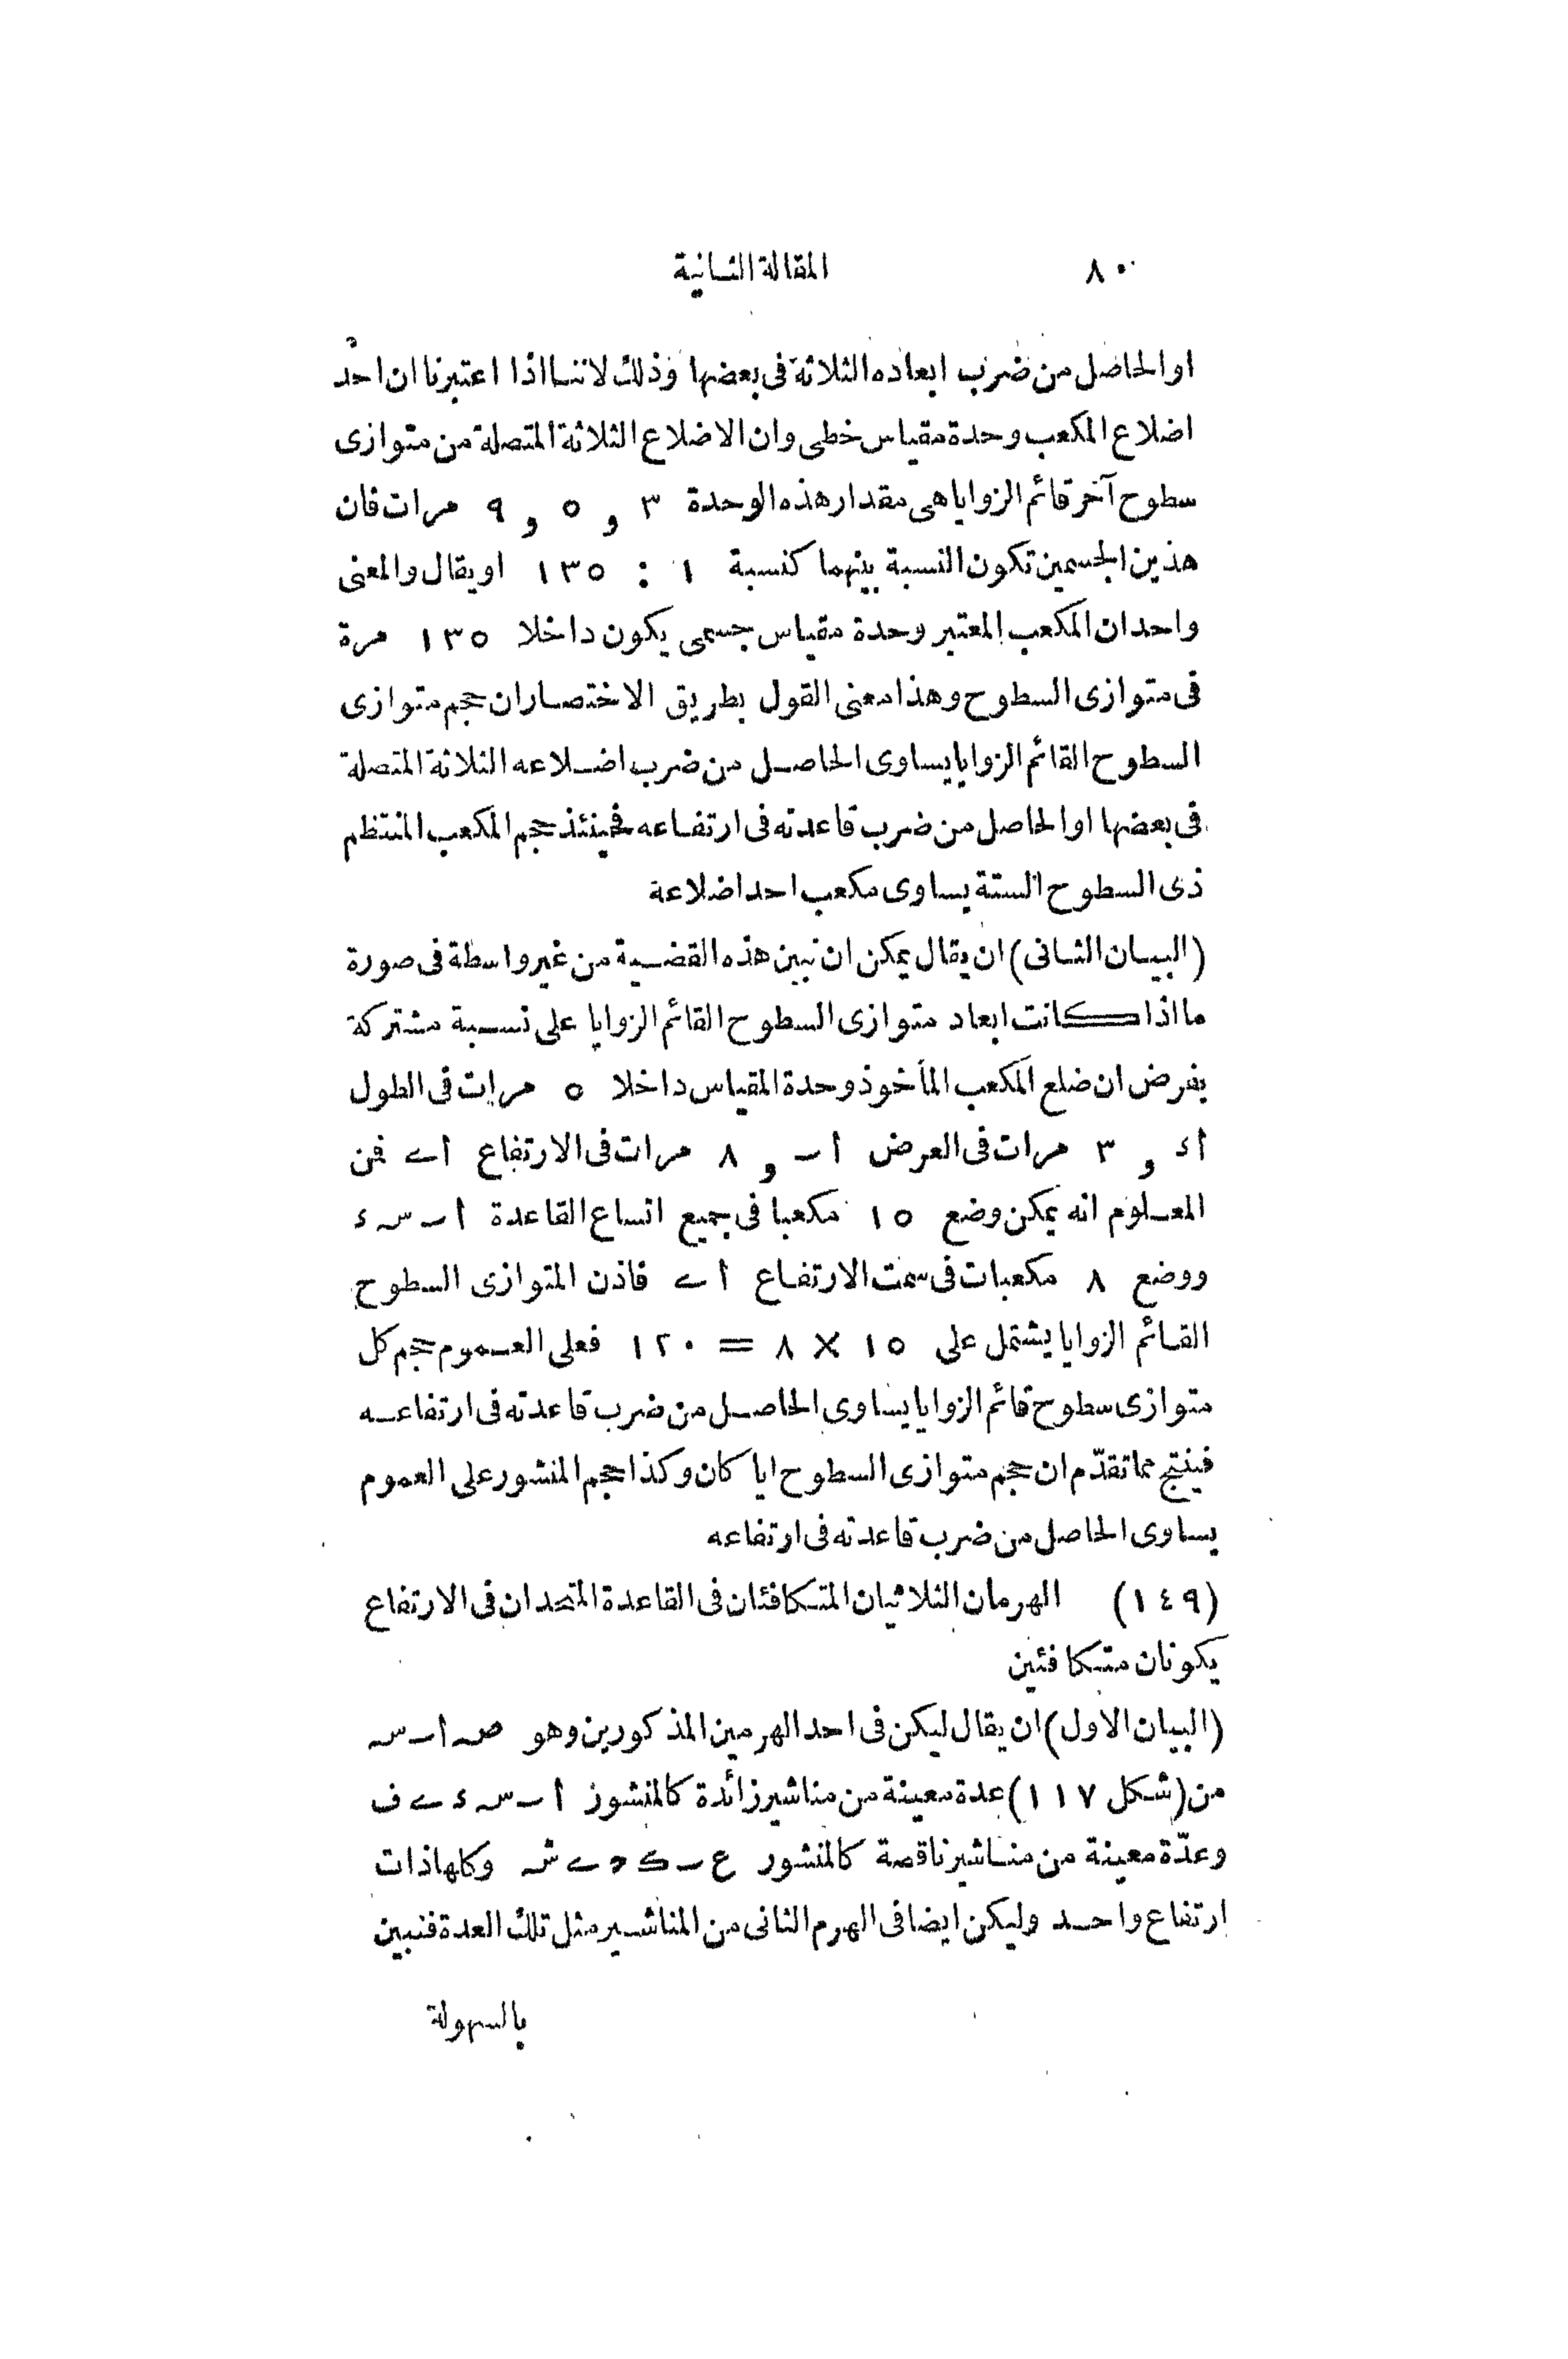 ٨٠ المقالة الثانية
او الحاصل من ضرب ابعاده الثلاثة فى بعضها وذلك لاننا اذا اعتبرنا ان احد
اضلاع المكعب وحدة مقياس خطى وان الاضلاع الثلاثة المتصلة من متوازى
سطوح آخر قائم الزوايا هى مقدار هذه الوحدة ٣ و ٥ و ٩ مرات فان
هذين الجسمين تكون النسبة بينهما كنسبة ١ : ١٣٥ او يقال والمعنى
واحد ان المكعب المعتبر وحدة مقياس جسمى يكون داخلا ١٣٥ مرة
فى متوازى السطوح وهذا معنى القول بطريق الاختصار ان حجم متوازى
السطوح القائم الزوايا يساوى الحاصل من ضرب اضلاعه الثلاثة المتصلة
فى بعضها او الحاصل من ضرب قاعدته فى ارتفاعه فحينئذ حجم المكعب المنتظم
ذى السطوح الستة يساوى مكعب احد اضلاعة
(البيان الثانى) ان يقال يمكن ان نبين هذه القضية من غير واسطة فى صورة
ما اذا كانت ابعاد متوازى السطوح القائم الزوايا على نسبة مشتركة
بفرض ان ضلع المكعب المأخوذ وحدة المقياس داخلا ٥ مرات فى الطول
أء و ٣ مرات فى العرض أـ و ٨ مرات فى الارتفاع أے فمن
المعلوم انه يمكن وضع ١٥ مكعبا فى جميع اتساع القاعدة أ ـ سـ ء
ووضع ٨ مكعبات فى سمت الارتفاع أ ے فاذن المتوازى السطوح
القائم الزوايا يشتمل على ١٥ × ٨ = ١٢٠ فعلى العموم حجم كل
متوازى سطوح قائم الزوايا يساوى الحاصل من ضرب قاعدته فى ارتفاعه
فينتج مما تقدّم ان حجم متوازى السطوح ايا كان وكذا حجم المنشور على العموم
يساوى الحاصل من ضرب قاعدته فى ارتفاعه
(١٤٩) الهرمان الثلاثيان المتكافئان فى القاعدة المتحدان فى الارتفاع
يكونان متكافئين
(البيان الاول) ان يقال ليكن فى احد الهرمين المذكورين وهو صـ أ ـ سـ
من (شكل ١١٧) عدة معينة من مناشير زائدة كالمنشوز أ ـ سـ ء ے ف
وعدّة معينة من مناشير ناقصة كالمنشور ع ـ كـ د ے شـ وكلها ذات
ارتفاع واحد وليكن ايضا فى الهرم الثانى من المناشير مثل تلك العدة فنبين
بالسهولة